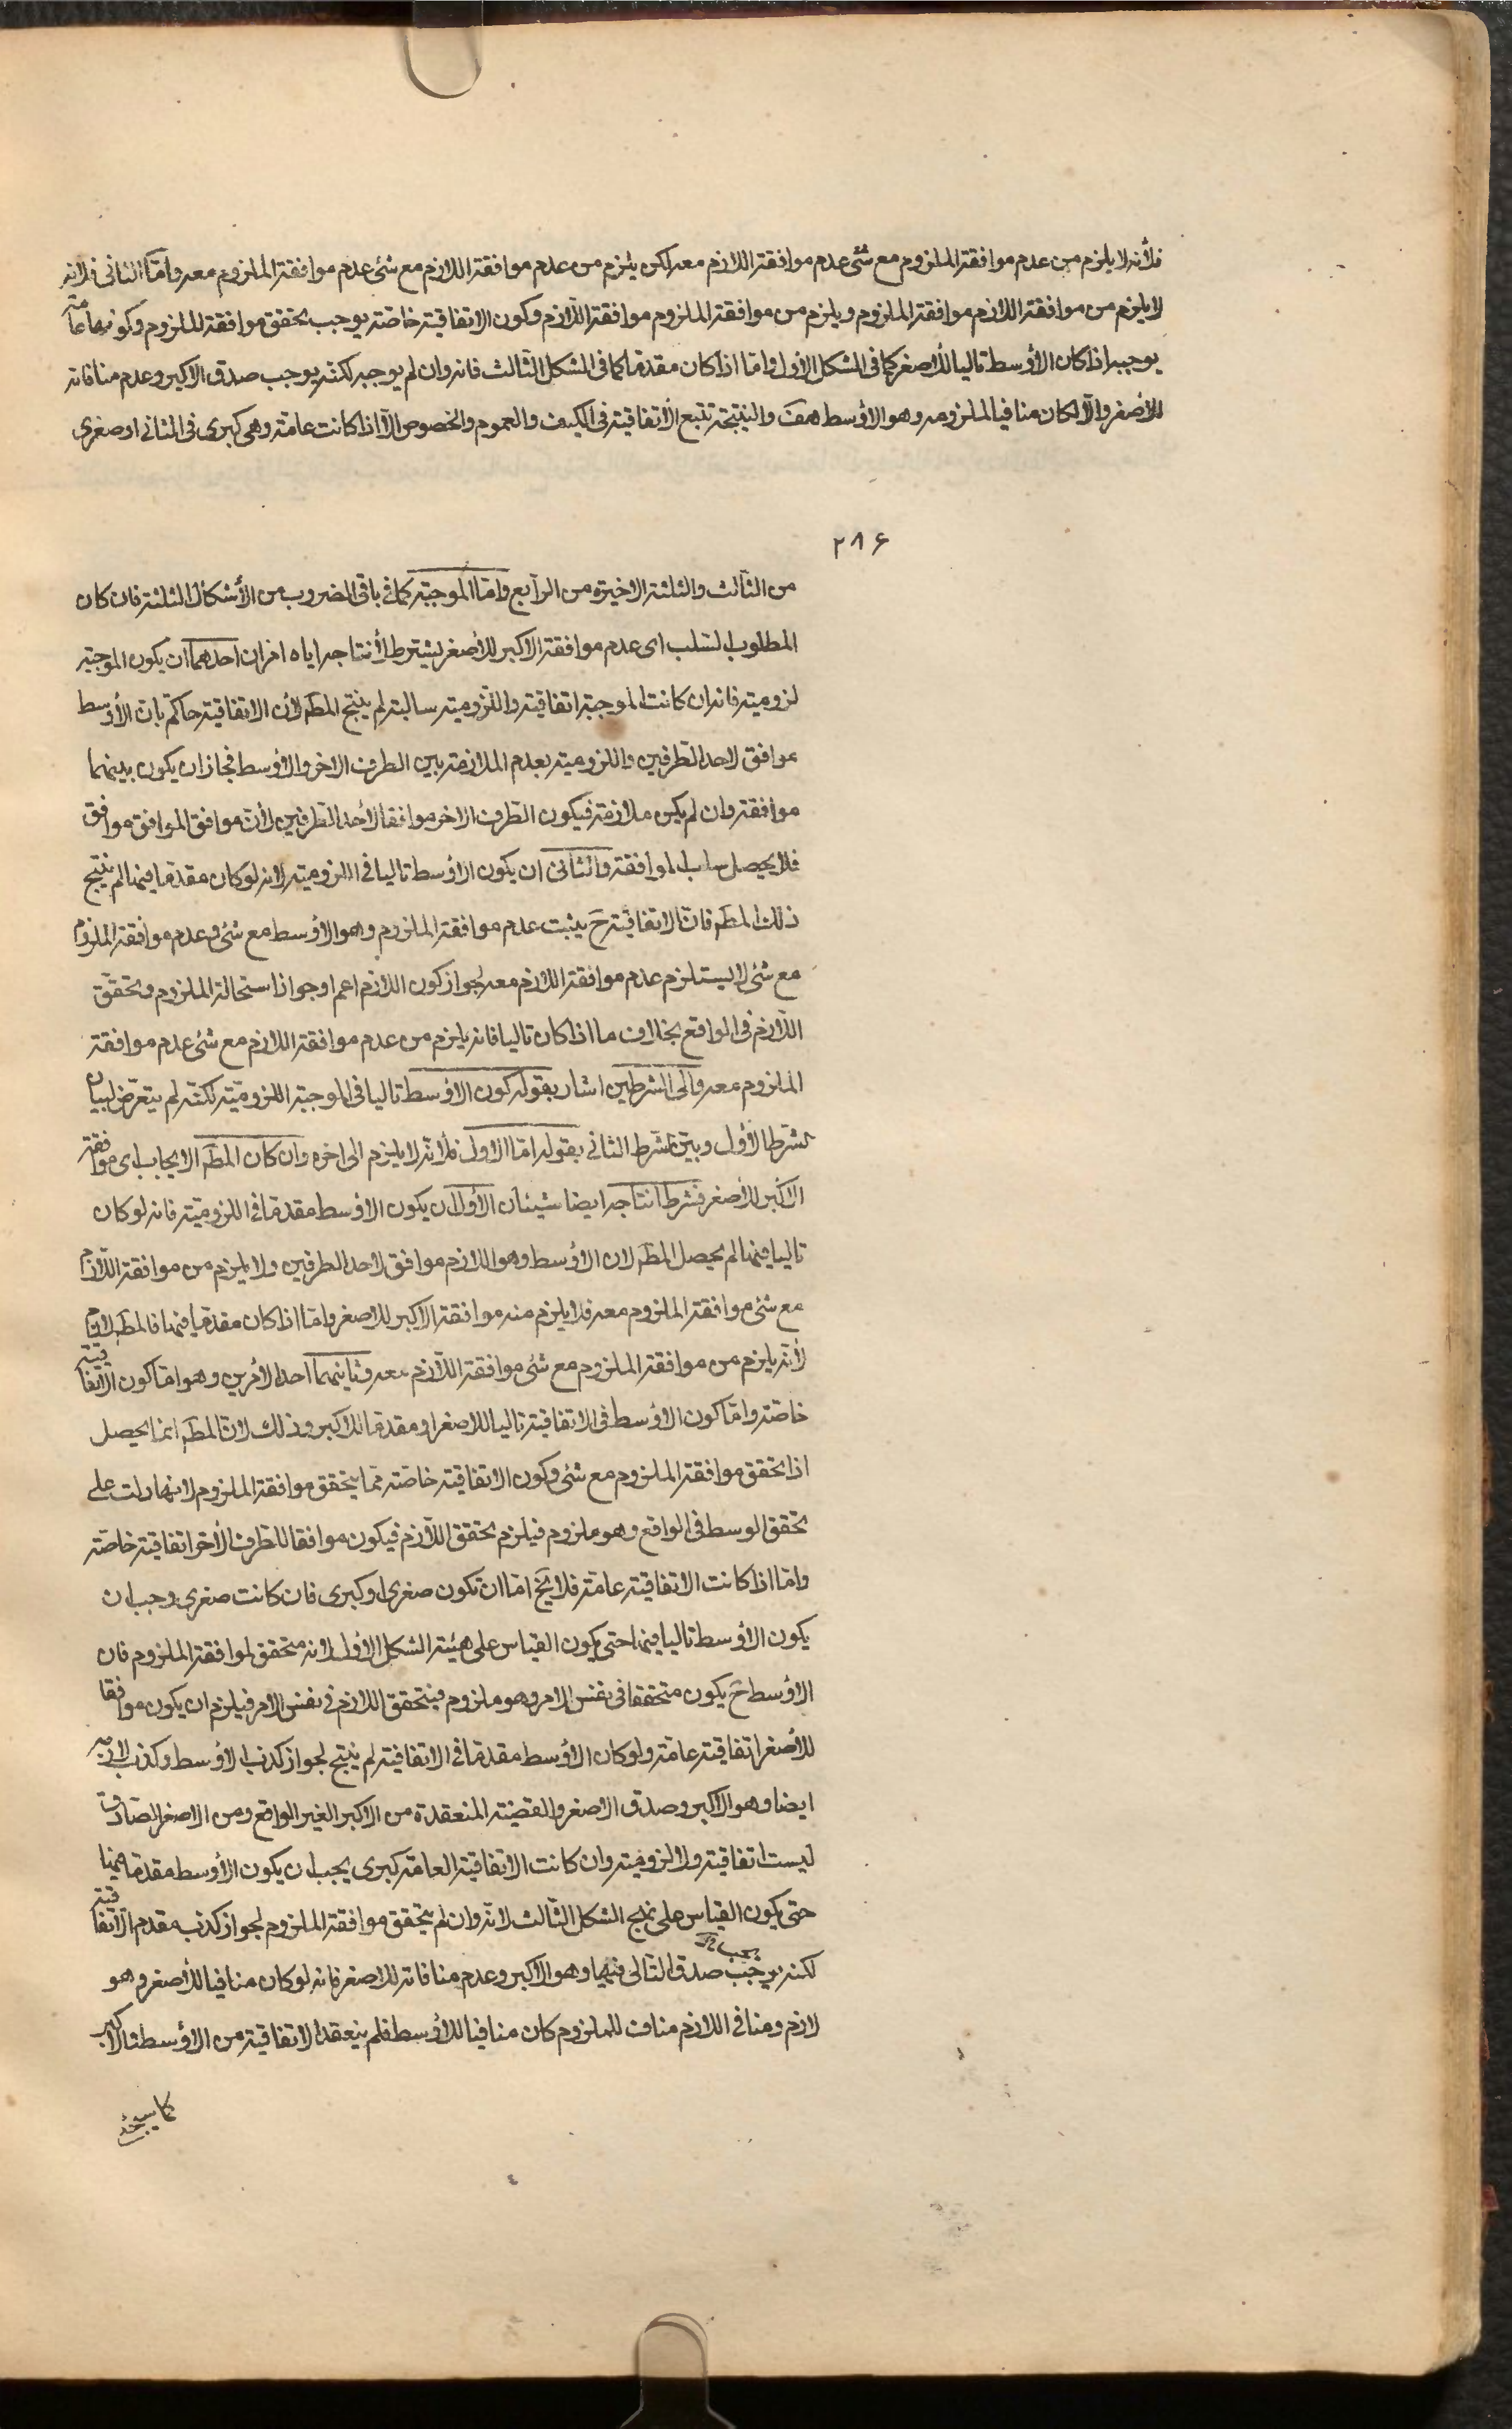 فلأنه لا يلزم من عدم موافقة الملزوم مع شئ عدم موافقة اللازم معه لكن يلزم من عدم موافقة اللازم مع شئ عدم موافقة الملزوم معه وامّا الثانى فلانه
لا يلزم من موافقة اللازم موافقة الملزوم ويلزم من موافقة الملزوم موافقة اللازم وكون الاتفاقية خاصّة يوجب تحقق موافقة للملزوم وكونها عامّة
يوجبه اذا كان الأوسط تاليا للأصغر كما فى الشكل الأول وامّا اذا كان مقدما كما فى الشكل الثالث فانه وان لم يوجبه لكنّه يوجب صدق الاكبر وعدم منافاته
للأصغر والّا لكان منافيا لملزومه وهو الأوسط هف والنتيجة تتبع الأتفاقية فى الكيف والعموم والخصوص الّا اذا كانت عامّة وهى كبرى فى الثانى او صغرى
٢٨۶
من الثالث والثلثة الاخيرة من الرابع وامّا الموجبة كما فى باقى الضروب من الأشكال الثلثة فان كان
المطلوب السلب اى عدم موافقة الاكبر للأصغر يشترط لأنتاجه اياه امران احدهما ان يكون الموجبة
لزومية فانه ان كانت الموجبة اتفاقية واللزومية سالبة لم ينتج المط لأن الاتفاقية حاكم بان الأوسط
موافق لاحد الطرفين واللزومية بعدم الملازمة بين الطرف الاخر والأوسط فجاز ان يكون بينهما
موافقة وان لم يكن ملازمة فيكون الطرف الاخر موافقا لأحد الطرفين لأن موافق الموافق موافق
فلا يحصل سلب الموافقة والثانى ان يكون الأوسط تاليا فى اللزومية لانه لو كان مقدما فيها لم ينتج
ذلك المط فان الاتفاقية ح يثبت عدم موافقة الملزوم وهو الأوسط مع شئ وعدم موافقة الملزوم
مع شئ لا يستلزم عدم موافقة اللازم معه لجواز كون اللازم اعم او جواز استحالة الملزوم وتحقق
اللازم فى الواقع بخلاف ما اذا كان تاليا فانه يلزم من عدم موافقة اللازم مع شئ عدم موافقة
الملزوم معه والى الشرطين اشار بقوله كون الأوسط تاليا فى الموجبة اللزومية لكنّه لم يتعرّض لبيان
الشرط الأول وبيّن الشرط الثانى بقوله امّا الاول فلأنه لا يلزم الى اخره وان كان المط الايجاب اى موافقة
الاكبر للأصغر فشرط انتاجه ايضا شيئان الأول ان يكون الاوسط مقدما فى اللزومية فانه لو كان
تاليا فيها لم يحصل المط لان الأوسط وهو اللازم موافق لاحد الطرفين ولا يلزم من موافقة اللازم
مع شئ موافقة الملزوم معه فلا يلزم منه موافقة الاكبر للاصغر وامّا اذا كان مقدما فيها فالمط لازم
لأنه يلزم من موافقة الملزوم مع شئ موافقة اللازم معه وثانيهما احد الأمرين وهو امّا كون الاتفاقية
خاصّة وامّا كون الاوسط فى الاتفاقية تاليا للاصغر او مقدما للاكبر وذلك لان المط انما يحصل
اذا تحقق موافقة الملزوم مع شئ وكون الاتفاقية خاصّة ممّا يتحقق موافقة الملزوم لانها دلت على
تحقق الوسط فى الواقع وهو ملزوم فيلزم تحقق اللازم فيكون موافقا للطرف الأخر اتفاقية خاصّة
وامّا اذا كانت الاتفاقية عامّة فلا يخ امّا ان تكون صغرى او كبرى فان كانت صغرى وجب ان
يكون الاوسط تاليا فيها حتى يكون القياس على هيئة الشكل الأول لانه متحقق لموافقة الملزوم فان
الاوسط ح يكون متحققا فى نفس الامر وهو ملزوم فيتحقق اللازم فى نفس الامر فيلزم ان يكون موافقا
للأصغر اتفاقية عامّة ولو كان الأوسط مقدما فى الاتفاقية لم ينتج لجواز كذب الاوسط وكذب لازمه
ايضا وهو الاكبر وصدق الاصغر والقضية المنعقدة من الاكبر الغير الواقع ومن الاصغر الصادق
ليست اتفاقية ولا لزومية وان كانت الاتفاقية العامة كبرى يجب ان يكون الأوسط مقدما فيها
حتى يكون القياس على نهج الشكل الثالث لانه وان لم يتحقق موافقة الملزوم لجواز كذب مقدم الاتفاقية
لكنه يوجب صدق التالى فيها وهو الاكبر وعدم منافاته للاصغر فانه لو كان منافيا للأصغر وهو
لازم ومنافى اللازم مناف للملزوم كان منافيا للأوسط فلم ينعقد الاتفاقية من الاوسط والاكبر